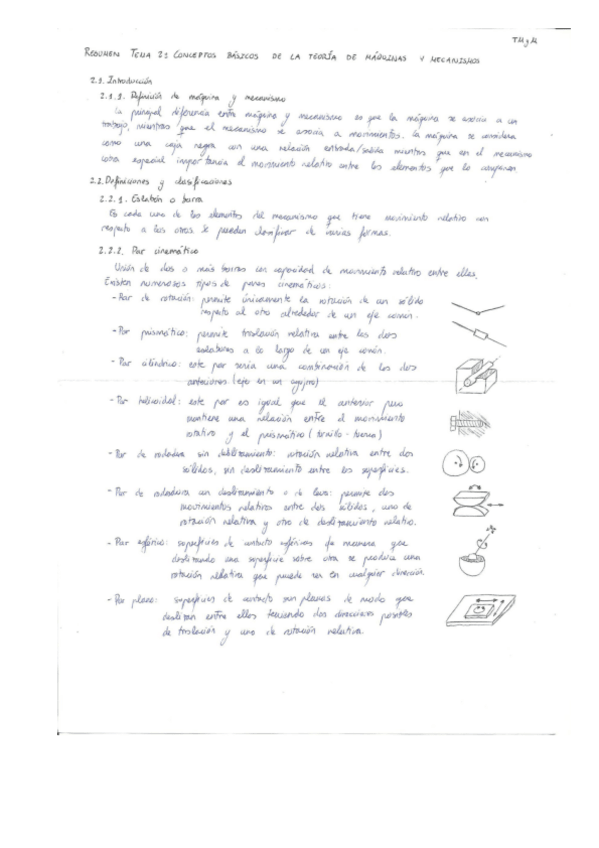 TMyM
RESUMEN TEMA 2: CONCEPTOS BÁSICOS DE LA TEORÍA DE MÁQUINAS Y MECANISMOS
2.1. Introducción
2.1.1. Definición de máquina y mecanismo
La principal diferencia entre máquina y mecanismo es que la máquina se asocia a un
trabajo, mientras que el mecanismo se asocia a movimientos. La máquina se considera
como una caja negra con una relación entrada/salida mientras que en el mecanismo
cobra especial importancia el movimiento relativo entre los elementos que lo componen
2.2. Definiciones y clasificaciones
2.2.1. Eslabón o barra
Es cada uno de los elementos del mecanismo que tiene movimiento relativo con
respecto a los otros. Se pueden clasificar de varias formas.
2.2.2. Par cinemático
Unión de dos o más barras con capacidad de movimiento relativo entre ellas.
Existen numerosos tipos de pares cinemáticos:
- Par de rotación: permite únicamente la rotación de un sólido
respecto al otro alrededor de un eje común.
- Par prismático: permite traslación relativa entre los dos
eslabones a lo largo de un eje común.
- Par cilíndrico: este par sería una combinación de los dos
anteriores (eje en un agujero)
- Par helicoidal: este par es igual que el anterior pero
mantiene una relación entre el movimiento
rotativo y el prismático (tornillo-tuerca)
- Par de rodadura sin deslizamiento: rotación relativa entre dos
sólidos, sin deslizamiento entre las superficies.
- Par de rodadura con deslizamiento o de leva: permite dos
movimientos relativos entre dos sólidos, uno de
rotación relativa y otro de deslizamiento relativo.
- Par esférico: superficies de contacto esféricas de manera que
deslizando una superficie sobre otra se produce una
rotación relativa que puede ser en cualquier dirección.
- Par plano: superficies de contacto son planas de modo que
deslizan entre ellas teniendo dos direcciones posibles
de traslación y una de rotación relativa.